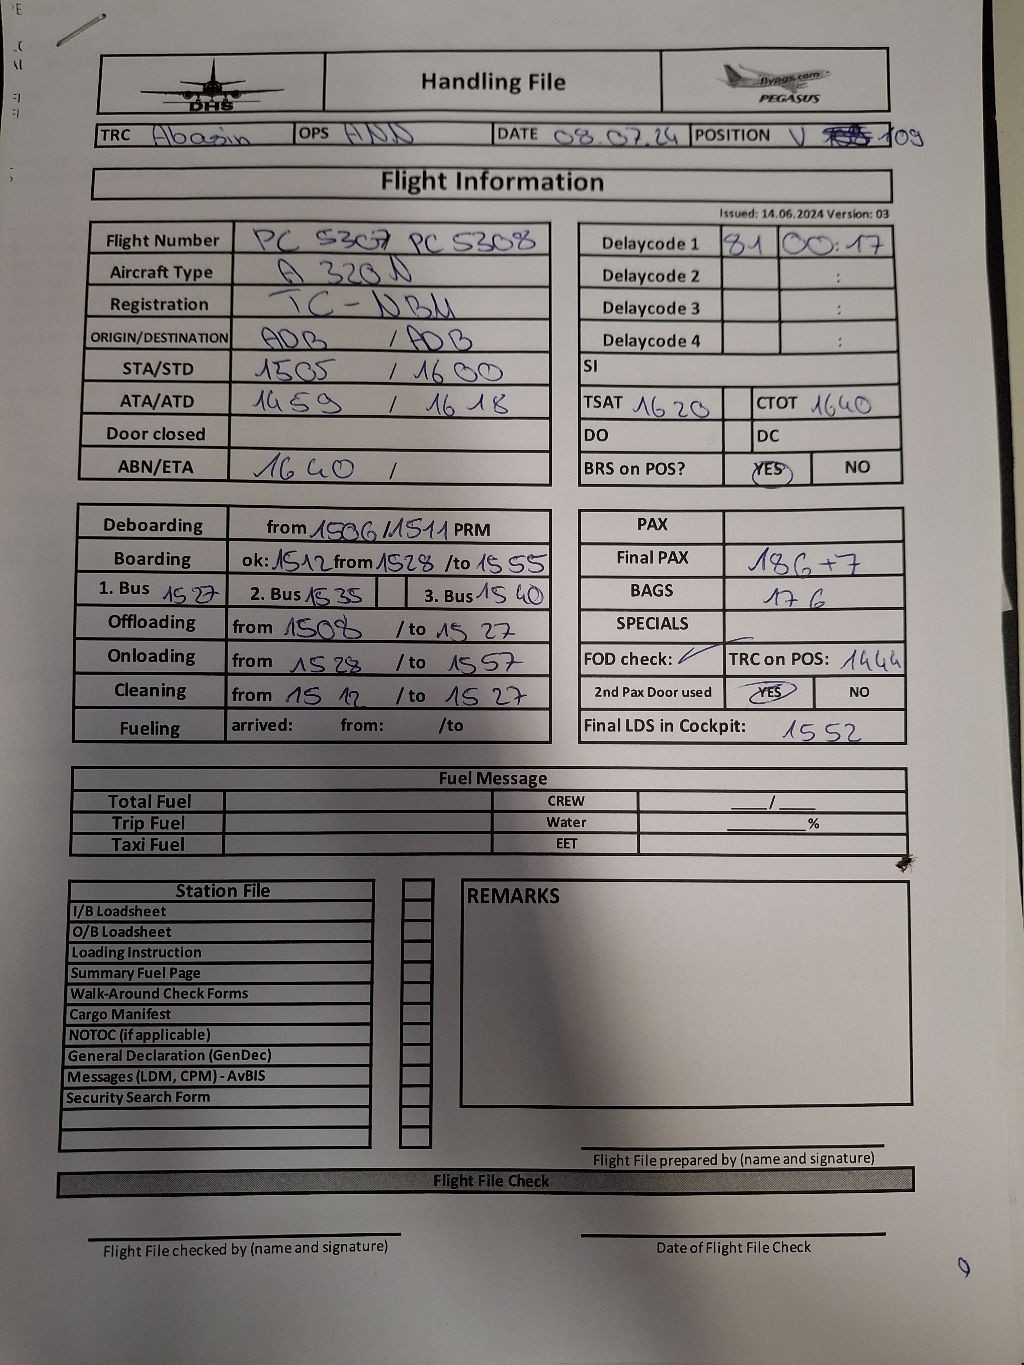 DHS
Handling File
flypgs.com
PEGASUS
TRC Abasin OPS ANN DATE 08.07.24 POSITION V 109
Flight Information
Issued: 14.06.2024 Version: 03
Flight Number PC 5307 PC 5308
Aircraft Type A 320N
Registration TC-NBM
ORIGIN/DESTINATION ADB / ADB
STA/STD 1505 / 1600
ATA/ATD 1459 / 1618
Door closed
ABN/ETA 1640 /
Delaycode 1 81 00:17
Delaycode 2 :
Delaycode 3 :
Delaycode 4 :
SI
TSAT 1620 CTOT 1640
DO DC
BRS on POS? YES NO
Deboarding from 1506 / 1511 PRM
Boarding ok: 1512 from 1528 /to 1555
1. Bus 1527 2. Bus 1535 3. Bus 1540
Offloading from 1508 / to 1527
Onloading from 1528 / to 1557
Cleaning from 1512 / to 1527
Fueling arrived: from: /to
PAX
Final PAX 186+7
BAGS 176
SPECIALS
FOD check: ✓ TRC on POS: 1444
2nd Pax Door used YES NO
Final LDS in Cockpit: 1552
Fuel Message
Total Fuel CREW ____/____
Trip Fuel Water _________%
Taxi Fuel EET
Station File
I/B Loadsheet
O/B Loadsheet
Loading Instruction
Summary Fuel Page
Walk-Around Check Forms
Cargo Manifest
NOTOC (if applicable)
General Declaration (GenDec)
Messages (LDM, CPM) - AvBIS
Security Search Form
REMARKS
Flight File prepared by (name and signature)
Flight File Check
Flight File checked by (name and signature)
Date of Flight File Check